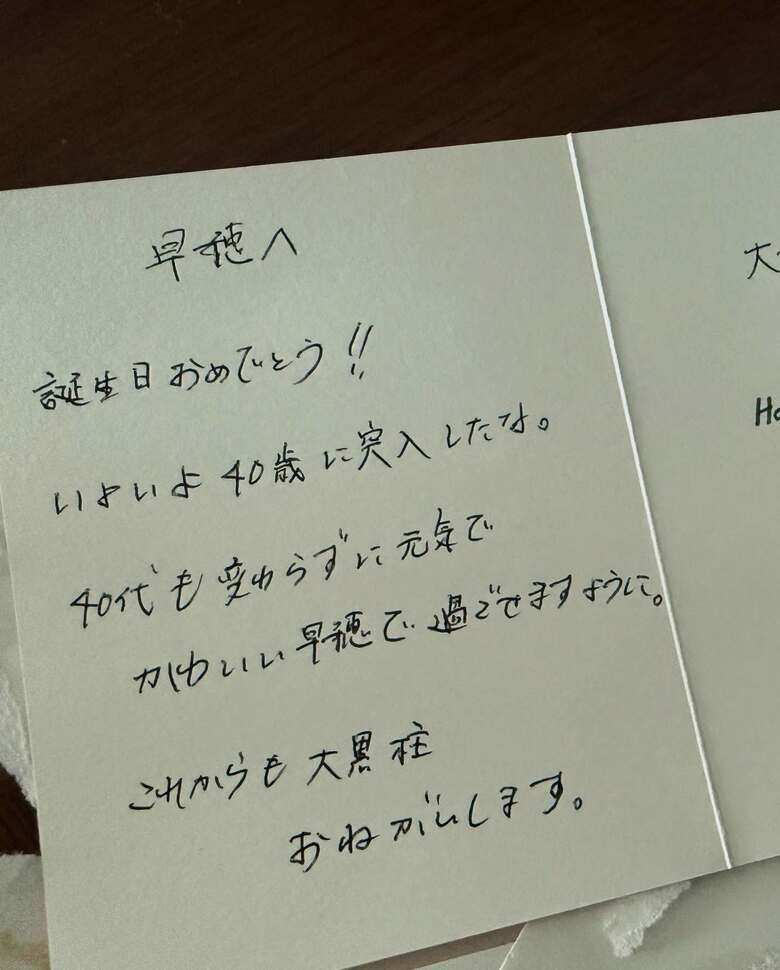 早穂へ
誕生日おめでとう!!
いよいよ40歳に突入したな。
40代も変わらずに元気で
かわいい早穂で過ごせますように。
これからも大黒柱
おねがいします。
大
Ho